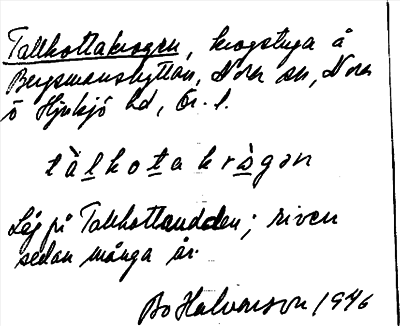 Tallkottakrogen, krogstuga å
Bergsmanshyttan, Nora sn, Nora
o Hjulsjö hd, Ör. l.
tàlkota krògən
Låg på Tallkottaudden; riven
sedan många år.
Bo Halvarson 1946